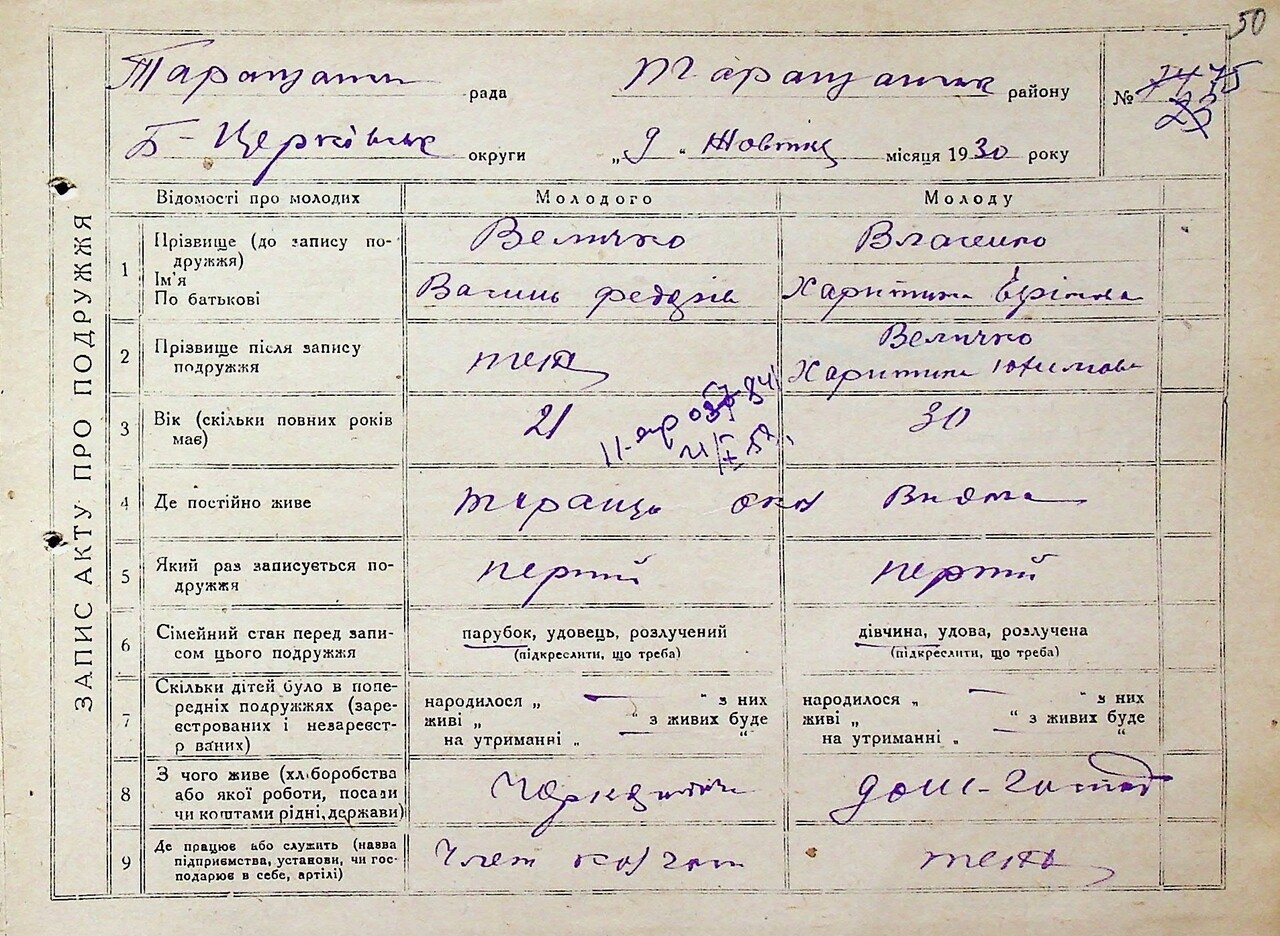 50
Таращан рада Таращанськ району № 75
Б-Церківськ округи „9“ Жовтня місяця 1930 року
ЗАПИС АКТУ ПРО ПОДРУЖЖЯ
Відомості про молодих Молодого Молоду
1 Прізвище (до запису подружжя) Величко Власенко
Ім'я
По батькові Василь Харитина
2 Прізвище після запису подружжя теж Величко
Харитина
3 Вік (скільки повних років має) 21 30
4 Де постійно живе
5 Який раз записується подружжя перший перший
6 Сімейний стан перед записом цього подружжя парубок, удовець, розлучений дівчина, удова, розлучена
(підкреслити, що треба) (підкреслити, що треба)
7 Скільки дітей було в попередніх подружжях (зареєстрованих і незареєстр ваних)
народилося „ — “ з них народилося „ — “ з них
живі „ “ з живих буде живі „ “ з живих буде
на утриманні „ — “ на утриманні „ — “
8 З чого живе (хліборобства або якої роботи, посади чи коштами рідні, держави) дом-господ
9 Де працює або служить (назва підприємства, установи, чи господарює в себе, артілі) Член теж